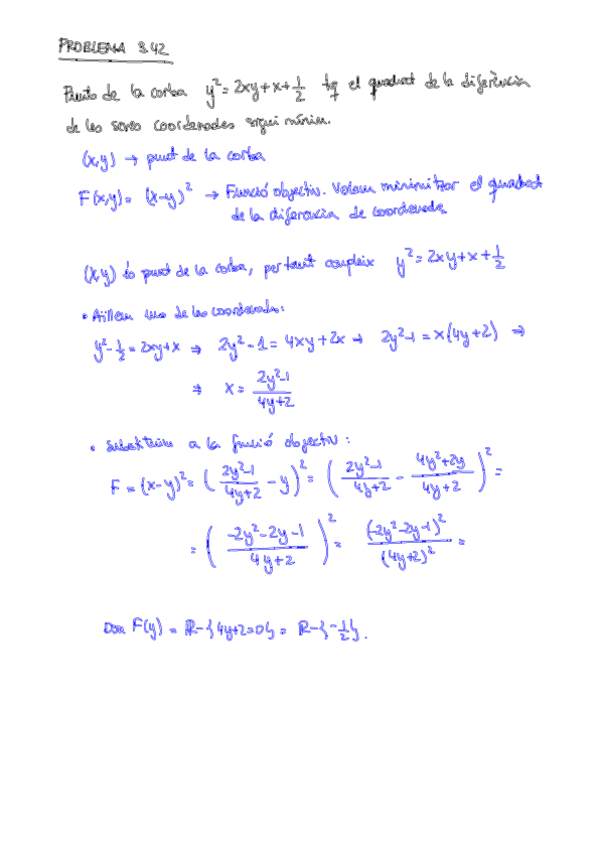 PROBLEMA 3.42
Punts de la corba y² = 2xy + x + 1/2 tq el quadrat de la diferència
de les seves coordenades sigui mínim.
(x,y) → punt de la corba
F(x,y) = (x-y)² → Funció objectiu. Volem minimitzar el quadrat
de la diferencia de coordenades
(x,y) és punt de la corba, per tant compleix y² = 2xy + x + 1/2
• Aïllem una de les coordenades:
y² - 1/2 = 2xy + x ⇒ 2y² - 1 = 4xy + 2x ⇒ 2y² - 1 = x(4y+2) ⇒
⇒ x = (2y²-1)/(4y+2)
• Substituïm a la funció objectiu:
F = (x-y)² = ((2y²-1)/(4y+2) - y)² = ((2y²-1)/(4y+2) - (4y²+2y)/(4y+2))² =
= ((-2y²-2y-1)/(4y+2))² = (-2y²-2y-1)²/(4y+2)² =
Dom F(y) = ℝ-{4y+2=0} = ℝ-{-1/2}.